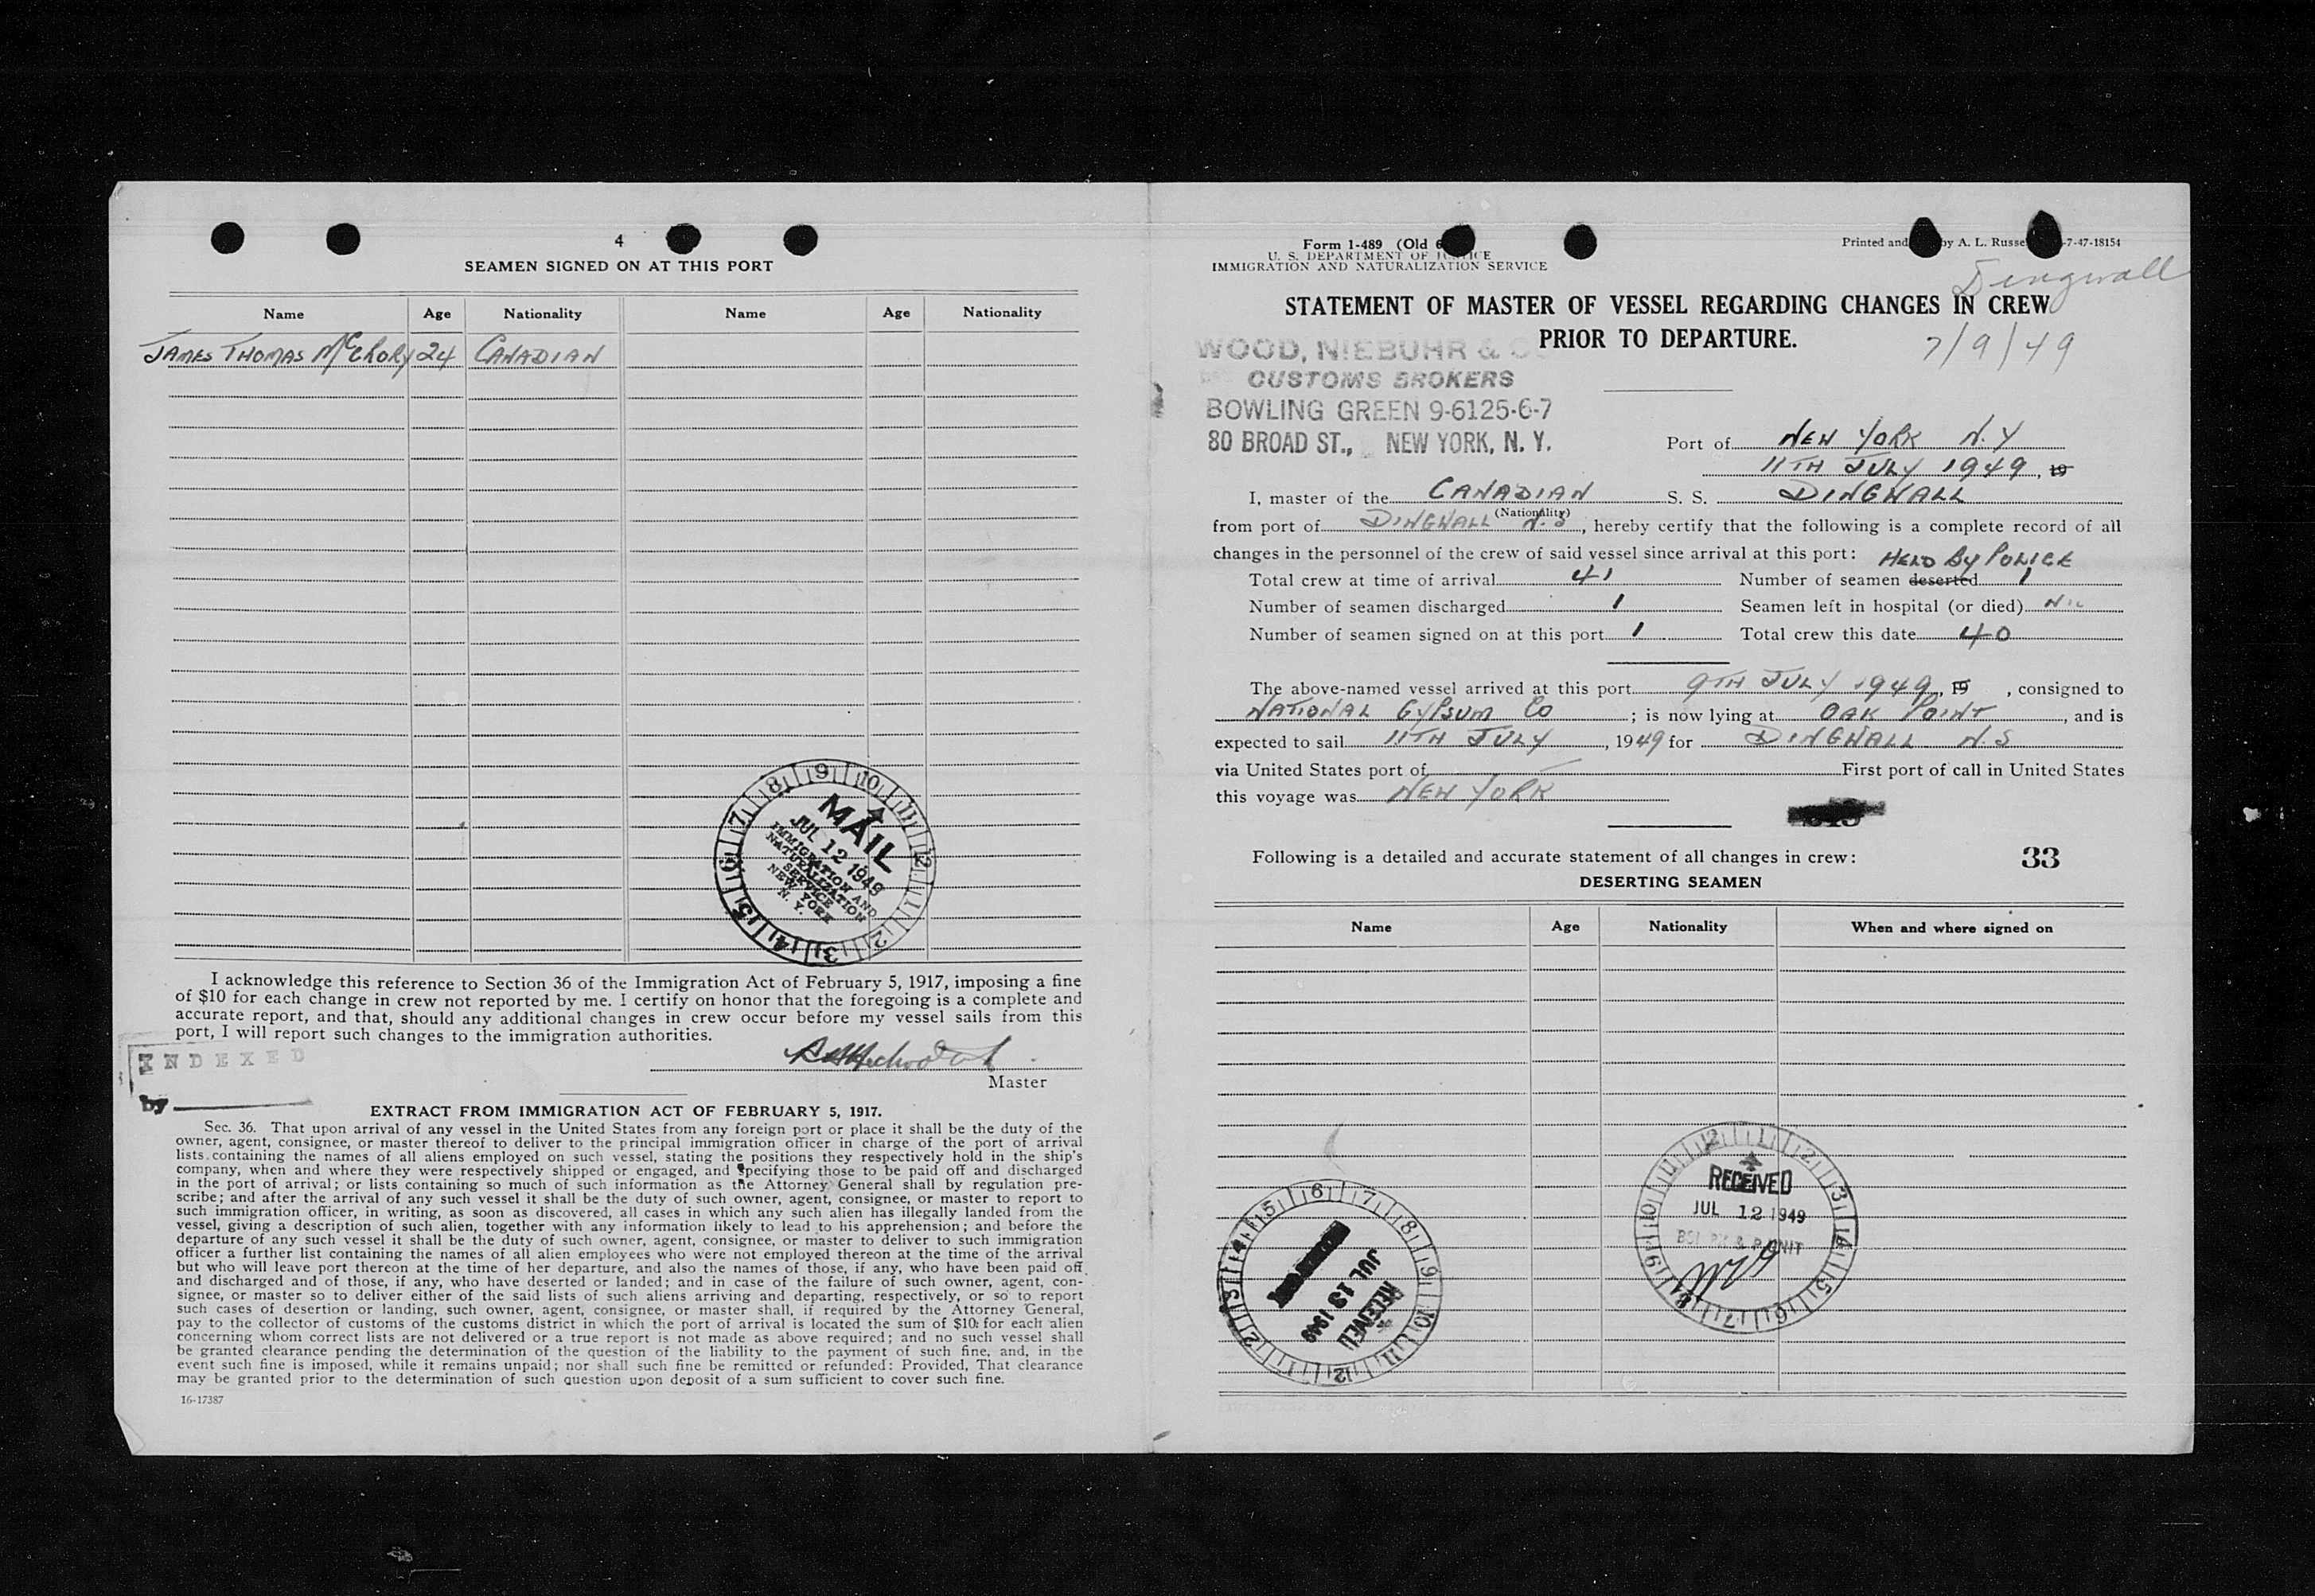 4
SEAMEN SIGNED ON AT THIS PORT
Name Age Nationality Name Age Nationality
JAMES THOMAS McCRORY 24 CANADIAN
MAIL
JUL 12 1949
IMMIGRATION AND
NATURALIZATION
SERVICE
NEW YORK
N. Y.
I acknowledge this reference to Section 36 of the Immigration Act of February 5, 1917, imposing a fine
of $10 for each change in crew not reported by me. I certify on honor that the foregoing is a complete and
accurate report, and that, should any additional changes in crew occur before my vessel sails from this
port, I will report such changes to the immigration authorities.
INDEXED
Master
by
EXTRACT FROM IMMIGRATION ACT OF FEBRUARY 5, 1917.
Sec. 36. That upon arrival of any vessel in the United States from any foreign port or place it shall be the duty of the
owner, agent, consignee, or master thereof to deliver to the principal immigration officer in charge of the port of arrival
lists containing the names of all aliens employed on such vessel, stating the positions they respectively hold in the ship's
company, when and where they were respectively shipped or engaged, and specifying those to be paid off and discharged
in the port of arrival; or lists containing so much of such information as the Attorney General shall by regulation pre-
scribe; and after the arrival of any such vessel it shall be the duty of such owner, agent, consignee, or master to report to
such immigration officer, in writing, as soon as discovered, all cases in which any such alien has illegally landed from the
vessel, giving a description of such alien, together with any information likely to lead to his apprehension; and before the
departure of any such vessel it shall be the duty of such owner, agent, consignee, or master to deliver to such immigration
officer a further list containing the names of all alien employees who were not employed thereon at the time of the arrival
but who will leave port thereon at the time of her departure, and also the names of those, if any, who have been paid off
and discharged and of those, if any, who have deserted or landed; and in case of the failure of such owner, agent, con-
signee, or master so to deliver either of the said lists of such aliens arriving and departing, respectively, or so to report
such cases of desertion or landing, such owner, agent, consignee, or master shall, if required by the Attorney General,
pay to the collector of customs of the customs district in which the port of arrival is located the sum of $10 for each alien
concerning whom correct lists are not delivered or a true report is not made as above required; and no such vessel shall
be granted clearance pending the determination of the question of the liability to the payment of such fine, and, in the
event such fine is imposed, while it remains unpaid; nor shall such fine be remitted or refunded: Provided, That clearance
may be granted prior to the determination of such question upon deposit of a sum sufficient to cover such fine.
16-17387
Form 1-489 (Old 6
U. S. DEPARTMENT OF JUSTICE
IMMIGRATION AND NATURALIZATION SERVICE
Printed and by A. L. Russe -7-47-18154
Dingwall
STATEMENT OF MASTER OF VESSEL REGARDING CHANGES IN CREW
PRIOR TO DEPARTURE.
7/9/49
WOOD, NIEBUHR & CO
CUSTOMS BROKERS
BOWLING GREEN 9-6125-6-7
80 BROAD ST., NEW YORK, N. Y.
Port of NEW YORK N.Y
11TH JULY 1949, 19
I, master of the CANADIAN S. S. DINGWALL
(Nationality)
from port of DINGWALL N.S, hereby certify that the following is a complete record of all
changes in the personnel of the crew of said vessel since arrival at this port:
HELD BY POLICE
Total crew at time of arrival 41 Number of seamen deserted 1
Number of seamen discharged 1 Seamen left in hospital (or died) NIL
Number of seamen signed on at this port 1 Total crew this date 40
The above-named vessel arrived at this port 9TH JULY 1949, 19 , consigned to
NATIONAL GYPSUM CO ; is now lying at OAK POINT, and is
expected to sail 11TH JULY, 1949 for DINGWALL N.S
via United States port of First port of call in United States
this voyage was NEW YORK
Following is a detailed and accurate statement of all changes in crew: 33
DESERTING SEAMEN
Name Age Nationality When and where signed on
RECEIVED
JUL 12 1949
RECEIVED
JUL 13 1949